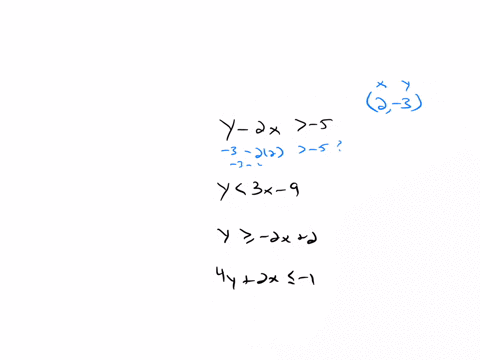 x y
(2,-3)
y - 2x > -5
-3 - 2(2) > -5 ?
-3 -
y < 3x - 9
y ≥ -2x + 2
4y + 2x ≤ -1